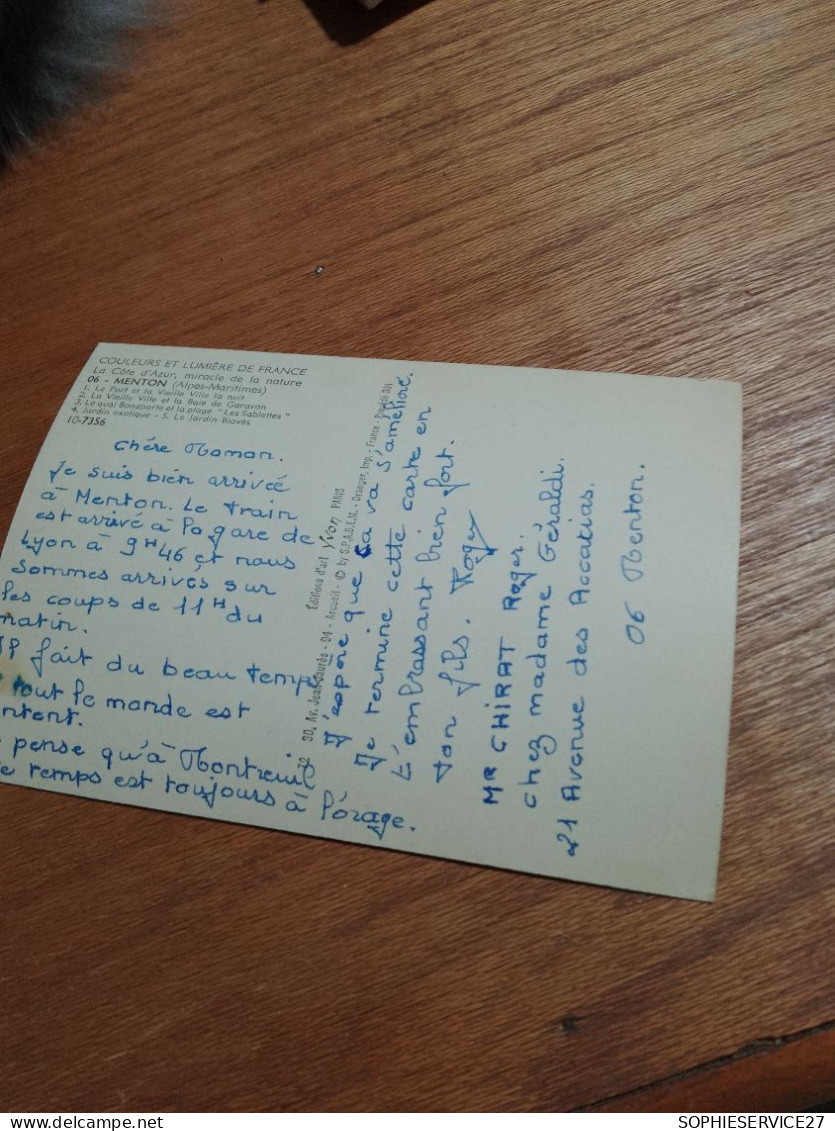 COULEURS ET LUMIÈRE DE FRANCE
La Côte d'Azur, miracle de la nature
06 - MENTON (Alpes-Maritimes)
1. Le Port et la Vieille Ville la nuit
2. La Vieille Ville et la Baie de Garavan
3. Le quai Bonaparte et la plage "Les Sablettes"
4. Jardin exotique - 5. Le Jardin Biovès
10-7356
Chére Maman.
Je suis bien arrivée
à Menton. Le train
est arrivé à la gare de
Lyon à 9H46 et nous
sommes arrivés sur
les coups de 11H du
matin.
Il fait du beau temps
tout le monde est
ntent.
pense qu'à Montreuil
e temps est toujours à l'orage.
Editions d'art Yvon PARIS
30, Av. Jean-Jaurès - 94 - Arcueil - © by S.P.A.D.E.M. - Draeger, Imp. - France
J'espère que ça va s'améliorer.
Je termine cette carte en
t'embrassant bien fort.
ton fils. Roger
MR CHIRAT Roger.
chez madame Géraldi.
21 Avenue des Accatias.
06 Menton.
SOPHIESERVICE27